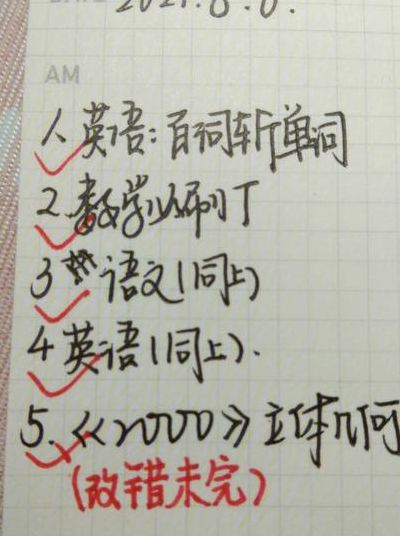 AM
1、英语:百词斩单词
2.数学必刷丁
3 语文(同上)
4 英语(同上).
5.《2000》立体几何
(改错未完)